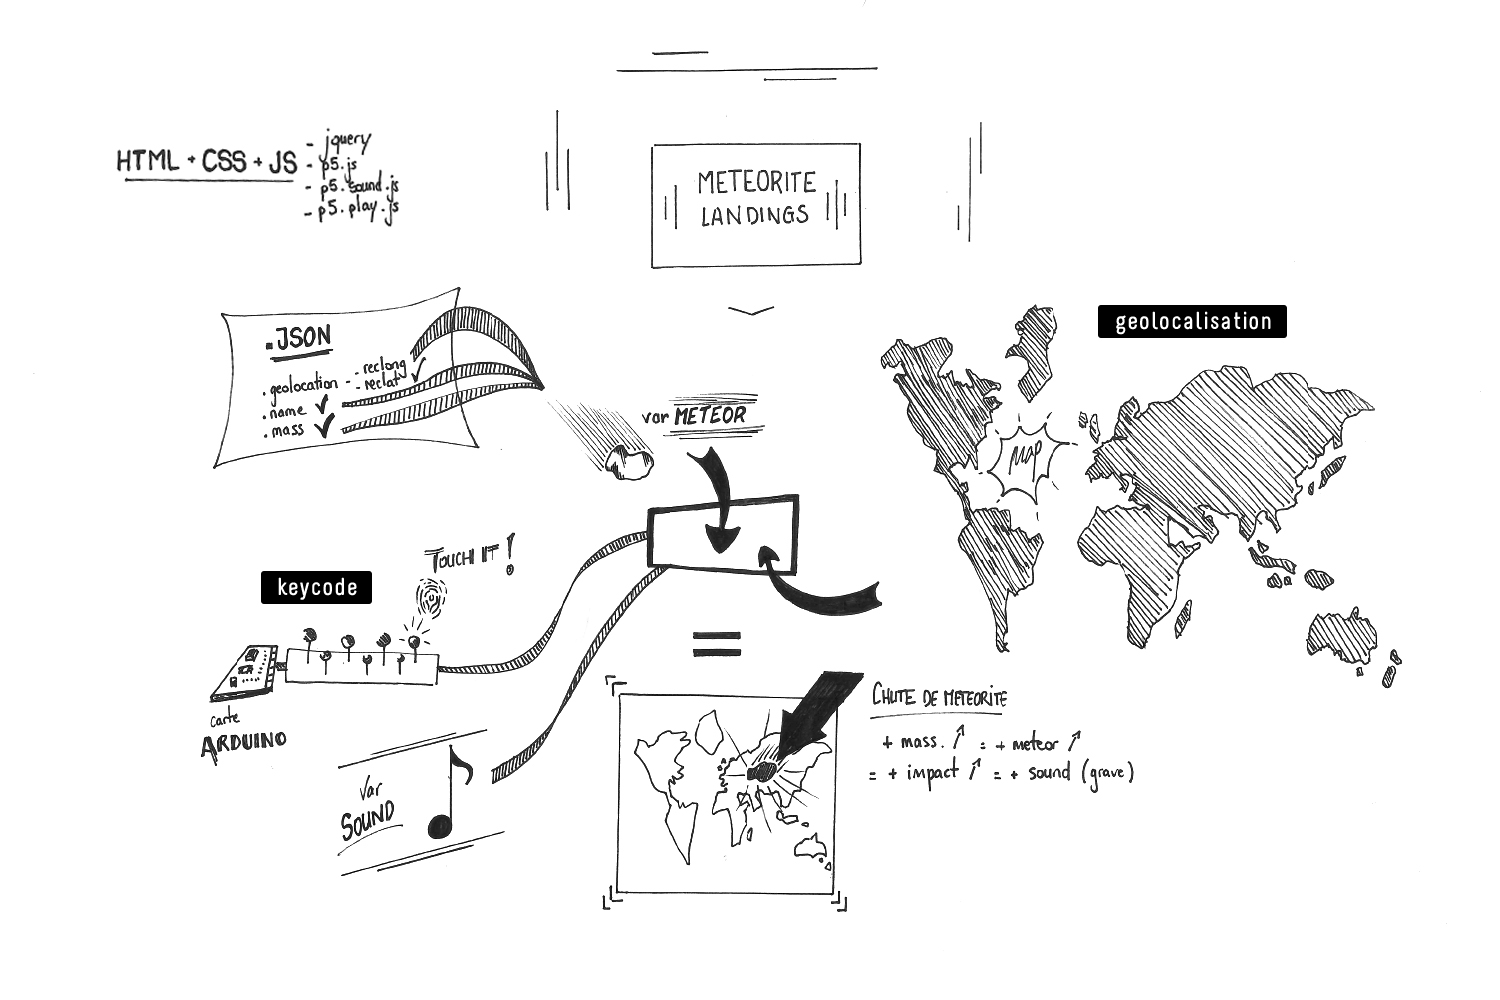 HTML + CSS + JS
- jquery
- p5.js
- p5.sound.js
- p5.play.js
METEORITE
LANDINGS
.JSON
. geolocation - - reclong
- reclat
. name
. mass
var METEOR
geolocalisation
MAP
TOUCH IT !
keycode
carte
ARDUINO
Var
SOUND
=
CHUTE DE METEORITE
+ mass. ↗ = + meteor ↗
= + impact ↗ = + sound (grave)